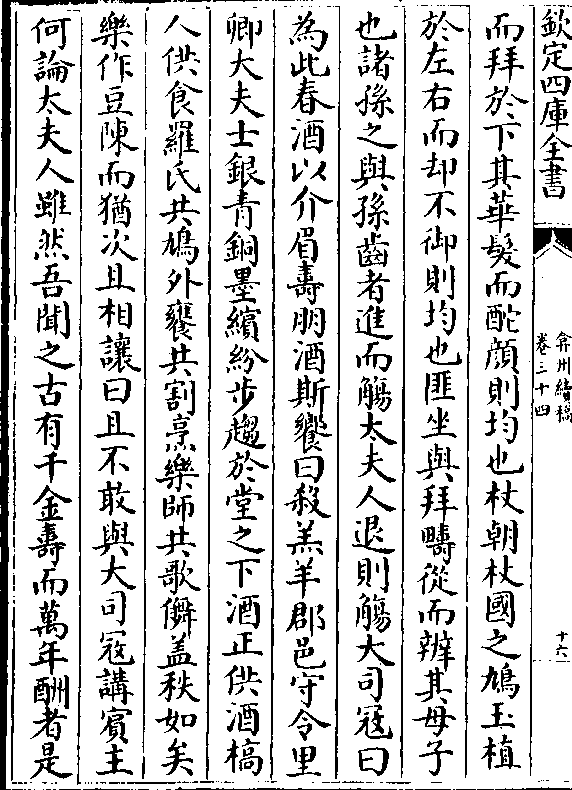 欽定四庫全書
弇州續稿
卷三十四
十六
而拜於下其華髮而酡顔則均也杖朝杖國之鳩玉植
於左右而却不御則均也匪坐與拜疇從而辨其母子
也諸孫之與孫齒者進而觴太夫人退則觴大司寇曰
為此春酒以介眉壽朋酒斯饗曰殺羔羊郡邑守令里
卿大夫士銀青銅墨繽紛步趨於堂之下酒正供酒槁
人供食羅氏共鳩外饔共割烹樂師共歌儛盖秩如矣
樂作豆陳而猶次且相讓曰且不敢與大司寇講賔主
何論太夫人雖然吾聞之古有千金壽而萬年酬者是